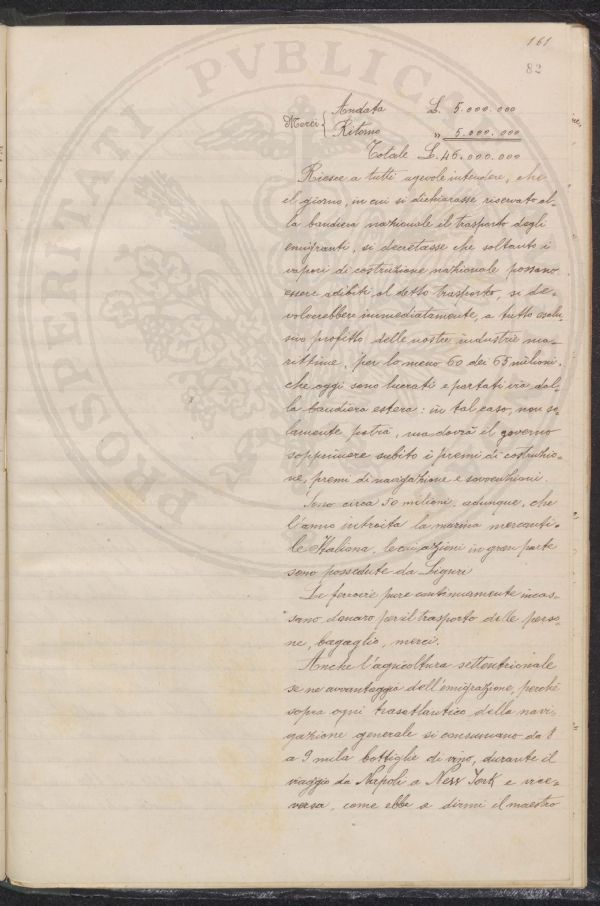 161
82
Merci { Andata £. 5.000.000
Ritorno „ 5.000.000
Totale £. 46.000.000
Riesce a tutti agevole intendere, che
il giorno, in cui si dichiarasse riservato al-
la bandiera nazionale il trasporto degli
emigranti, si decretasse che soltanto i
vapori di costruzione nazionale possano
essere adibiti al detto trasporto, si de-
volverebbero immediatamente, a tutto esclu-
sivo profitto delle nostre industrie ma-
rittime, per lo meno 60 dei 65 milioni,
che oggi sono lucrati e portati via dal-
la bandiera estera: in tal caso, non so-
lamente potrà, ma dovrà il governo
sopprimere subito i premi di costruzio-
ne, premi di navigazione e sovvenzioni.
Sono circa 50 milioni, adunque, che
l'anno introita la marina mercanti-
le Italiana, le cui azioni in gran parte
sono possedute da Liguri
Le ferrovie pure continuamente incas-
sano danaro per il trasporto delle perso-
ne, bagaglio, merci.
Anche l'agricoltura settentrionale
se ne avvantaggia dell'emigrazione, perchè
sopra ogni trasatlantico della navi-
gazione generale si consumano da 8
a 9 mila bottiglie di vino, durante il
viaggio da Napoli a New York e vice-
versa, come ebbe a dirmi il maestro
PVBLICA